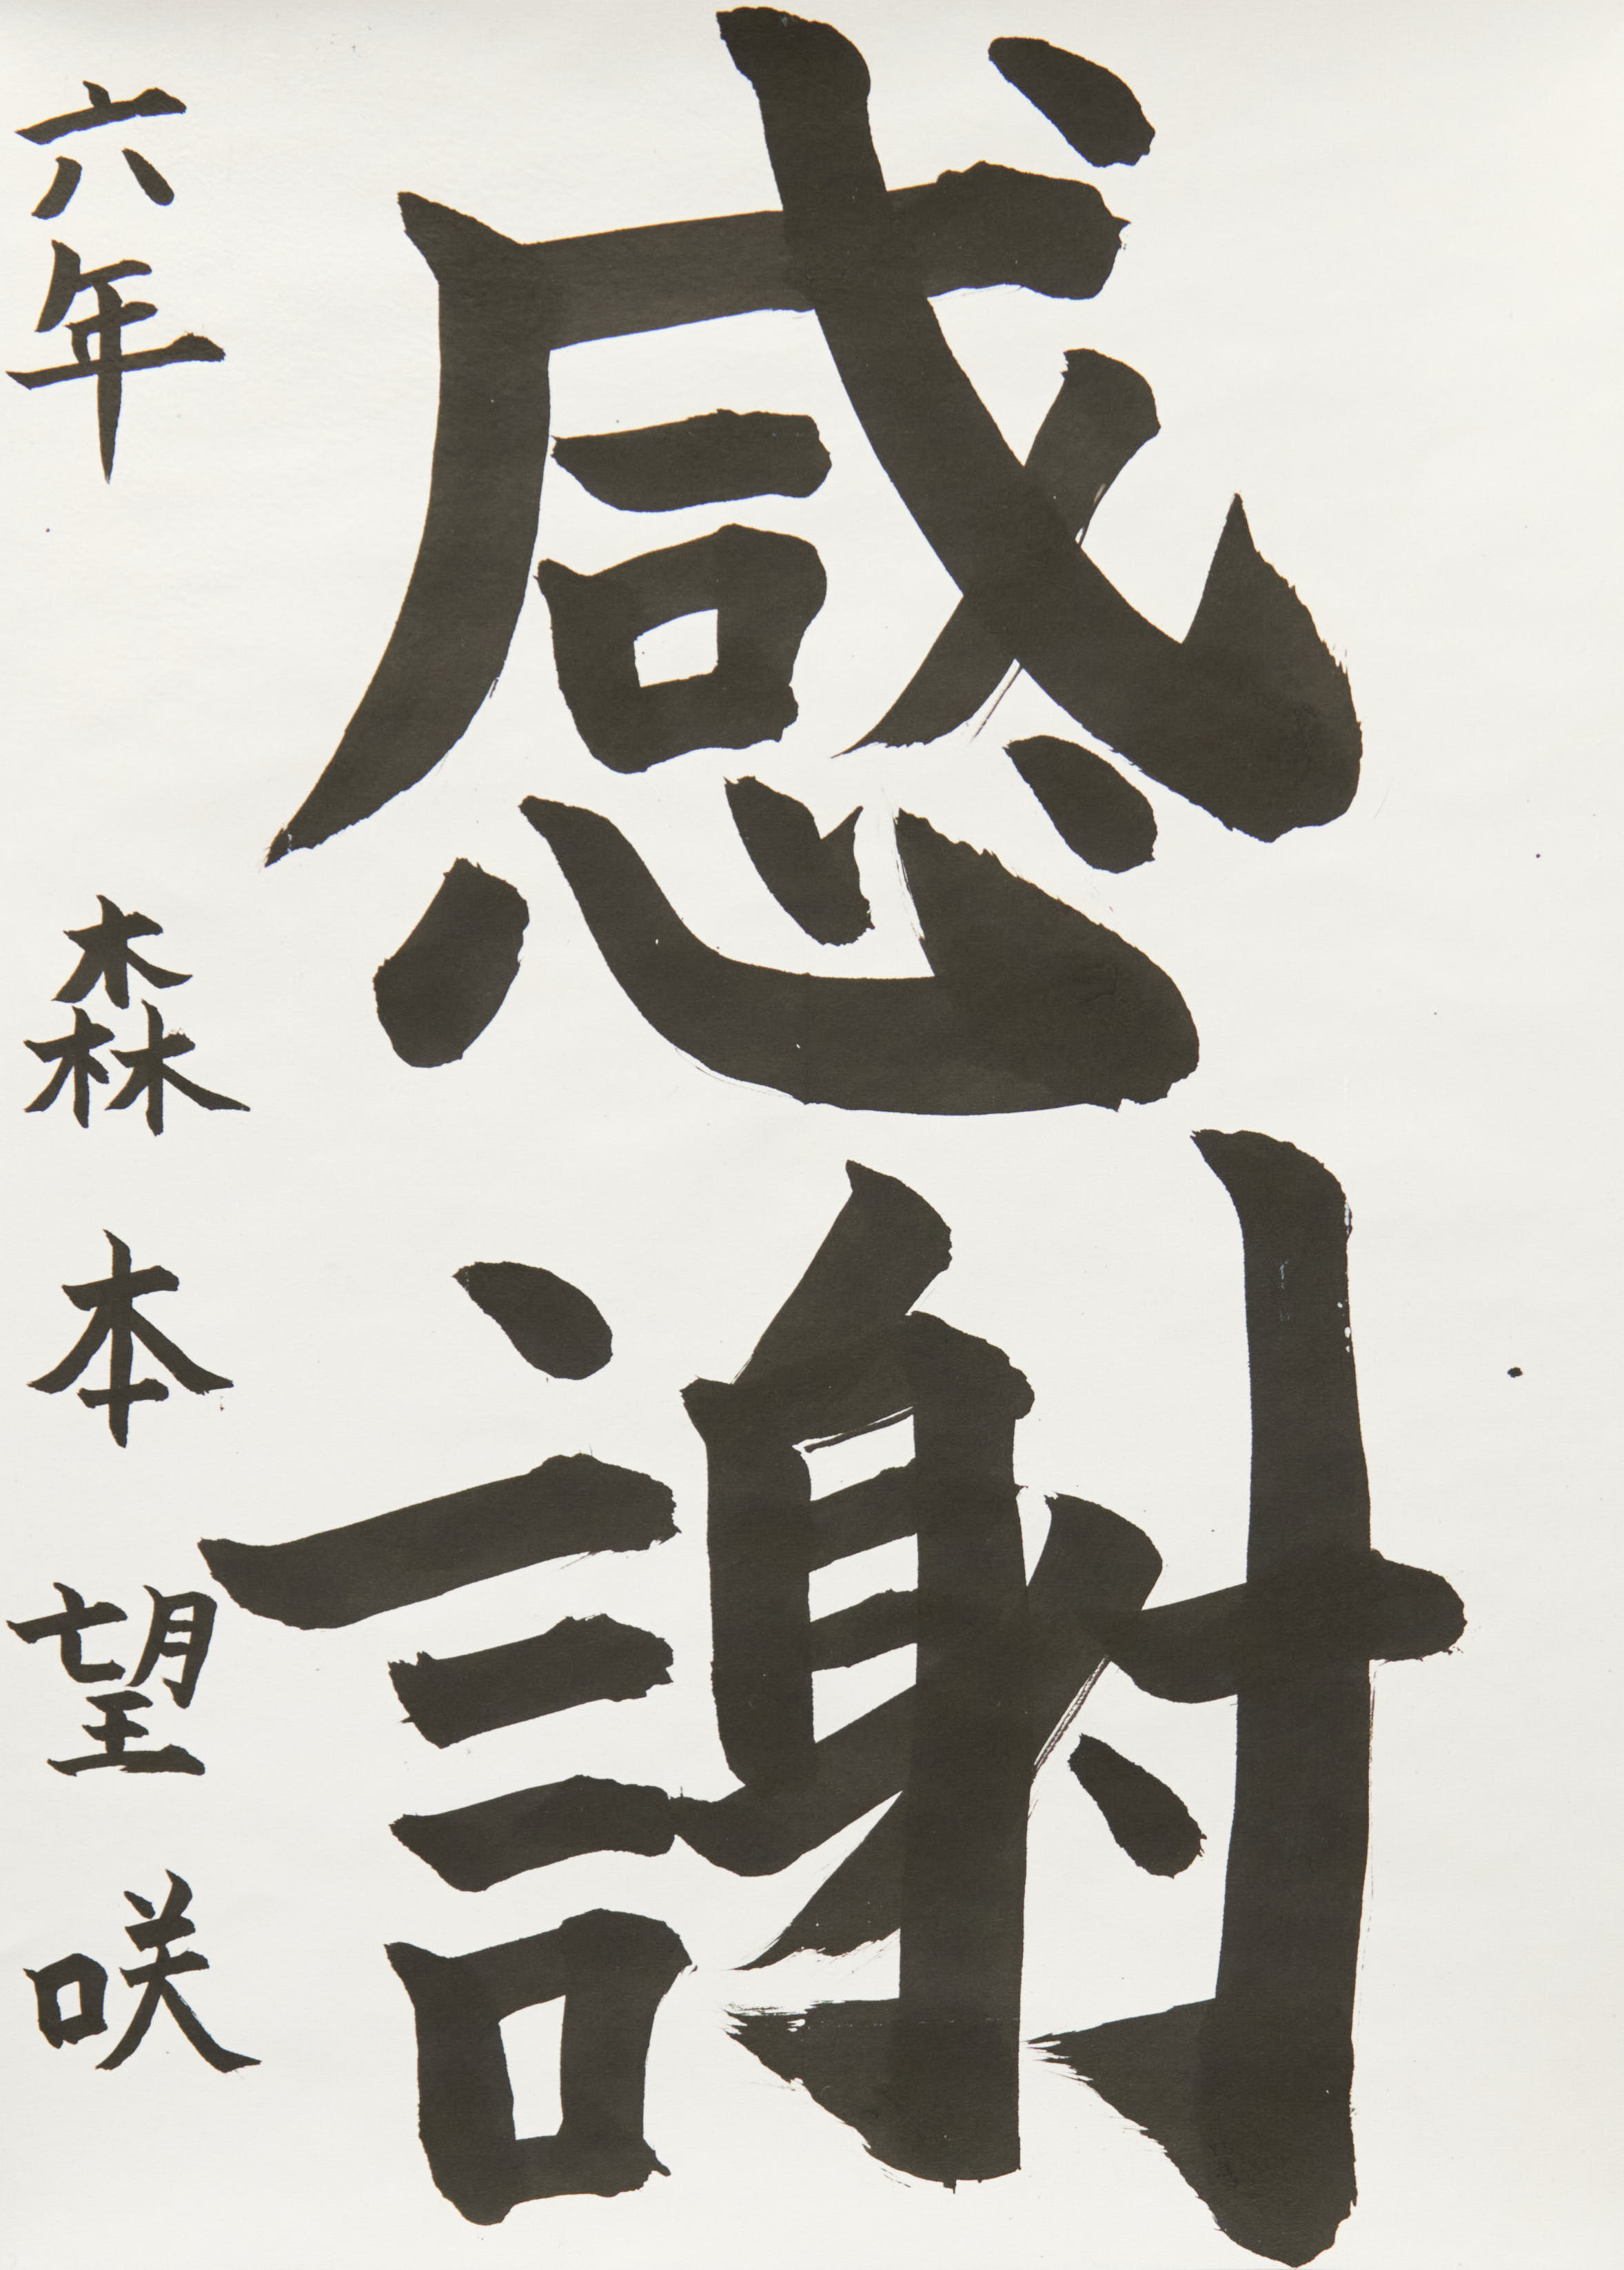 感謝
六年 森本望咲